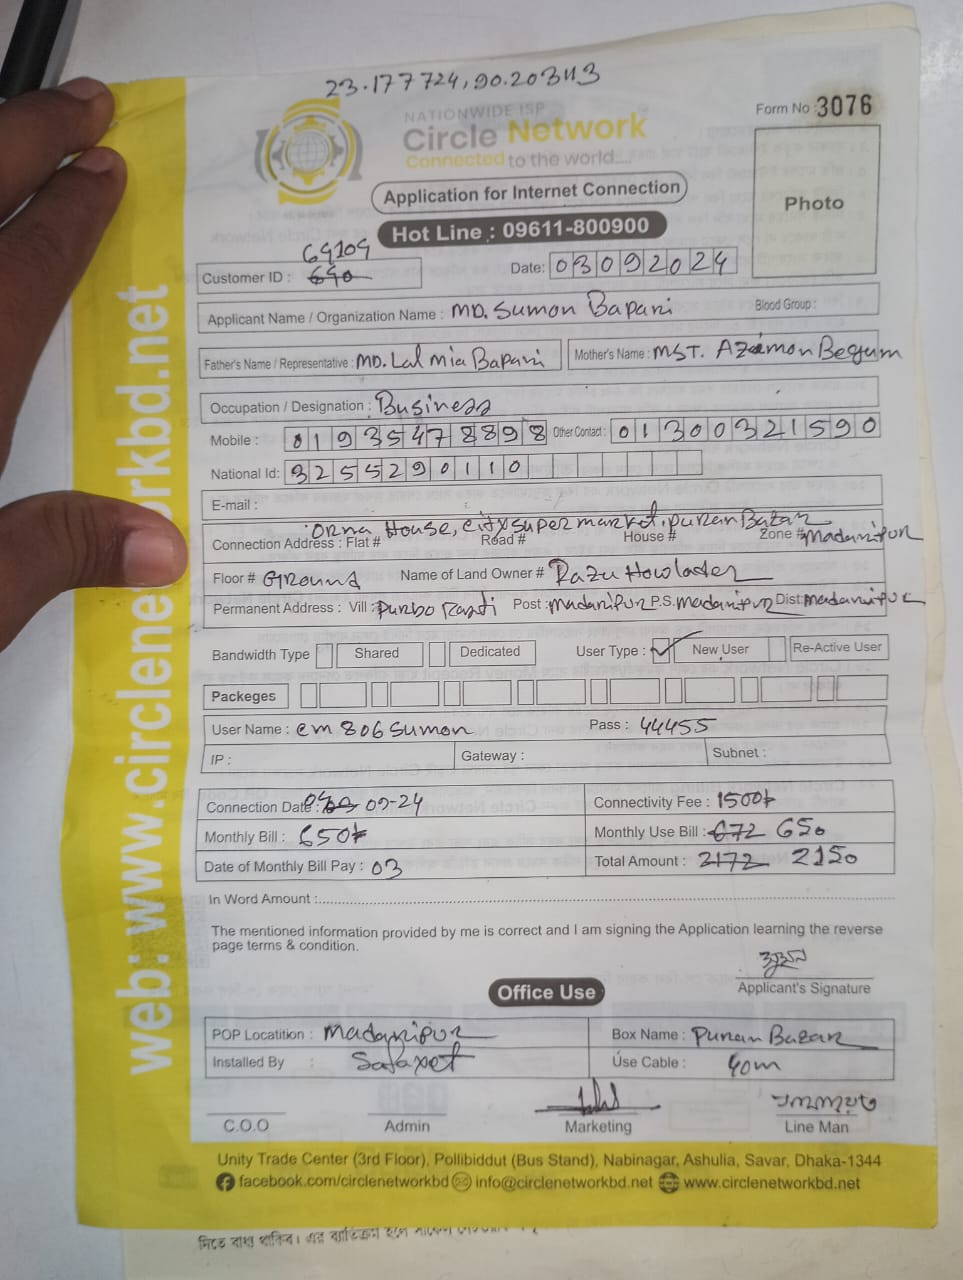 23.177724, 90.203113
NATIONWIDE ISP
Circle Network
Connected to the world....
Form No : 3076
Photo
Application for Internet Connection
Hot Line : 09611-800900
69109
Customer ID :
Date: 03092024
Applicant Name / Organization Name : MD. Sumon Bapari
Blood Group :
Father's Name / Representative : MD. Lal mia Bapari
Mother's Name : MST. Azimon Begum
Occupation / Designation : Business
Mobile : 01935478898 Other Contact : 01300321590
National Id: 3255290110
E-mail :
Orna House, city super market, puran Bazar
Connection Address : Flat # Road # House # Zone # madaripur
Floor # Ground Name of Land Owner # Razu Howlader
Permanent Address : Vill : Purbo Rasti Post : madaripur P.S. madaripur Dist: madaripur
Bandwidth Type Shared Dedicated User Type : New User Re-Active User
Packeges
User Name : cm806sumon Pass : 44455
IP : Gateway : Subnet :
Connection Date : 09-24 Connectivity Fee : 1500/-
Monthly Bill : 650/- Monthly Use Bill : 672 650
Date of Monthly Bill Pay : 03 Total Amount : 2172 2150
In Word Amount :
The mentioned information provided by me is correct and I am signing the Application learning the reverse
page terms & condition.
সুমন
Applicant's Signature
Office Use
POP Locatition : Madaripur Box Name : Puran Bazar
Installed By : Safayet Use Cable : 40m
C.O.O Admin Marketing Line Man
Unity Trade Center (3rd Floor), Pollibiddut (Bus Stand), Nabinagar, Ashulia, Savar, Dhaka-1344
facebook.com/circlenetworkbd info@circlenetworkbd.net www.circlenetworkbd.net
web: www.circlenetworkbd.net
দিতে বাধ্য থাকিব। এর ব্যতিক্রম হলে